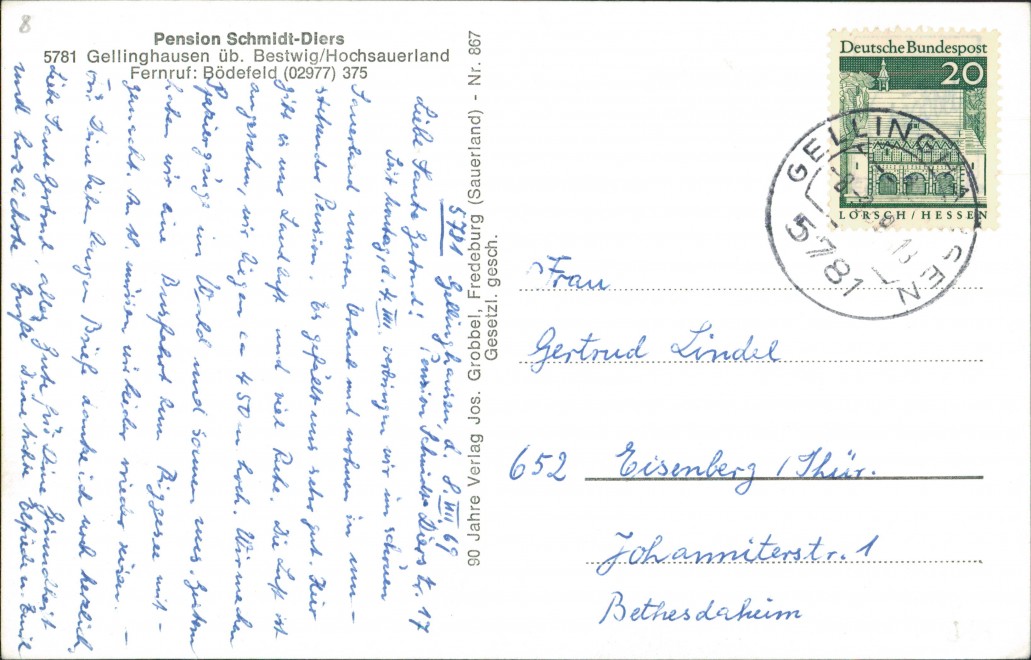 8
Pension Schmidt-Diers
5781 Gellinghausen üb. Bestwig/Hochsauerland
Fernruf: Bödefeld (02977) 375
5781 Gellinghausen, d. 8. VIII. 69
Pension Schmidt-Diers Nr. 17
Liebe Tante Gertrud!
Seit Montag, d. 4. VIII. verbringen wir im schönen
Sauerland unseren Urlaub und wohnen in um-
stehender Pension. Es gefällt uns sehr gut. Hier
gibt es nur Landluft und viel Ruhe. Die Luft ist
angenehm, wir liegen ca 450 m hoch. Wir machen
Spaziergänge im Wald und sonnen uns. Gestern
haben wir eine Busfahrt zum Biggesee mit-
gemacht. Am 18. müssen wir leider wieder reisen. –
Für Deinen lieben langen Brief danke ich noch herzlich.
Liebe Tante Gertrud, alles Gute für Deine Gesundheit
und herzlichste Grüße Deine Nichte Elfriede u. Emil
90 Jahre Verlag Jos. Grobbel, Fredeburg (Sauerland) - Nr. 867
Gesetzl. gesch.
Deutsche Bundespost
20
LORSCH/HESSEN
GELLINGHAUSEN
5781
Frau
Gertrud Lindel
652 Eisenberg /Thür.
Johanniterstr. 1
Bethesdaheim